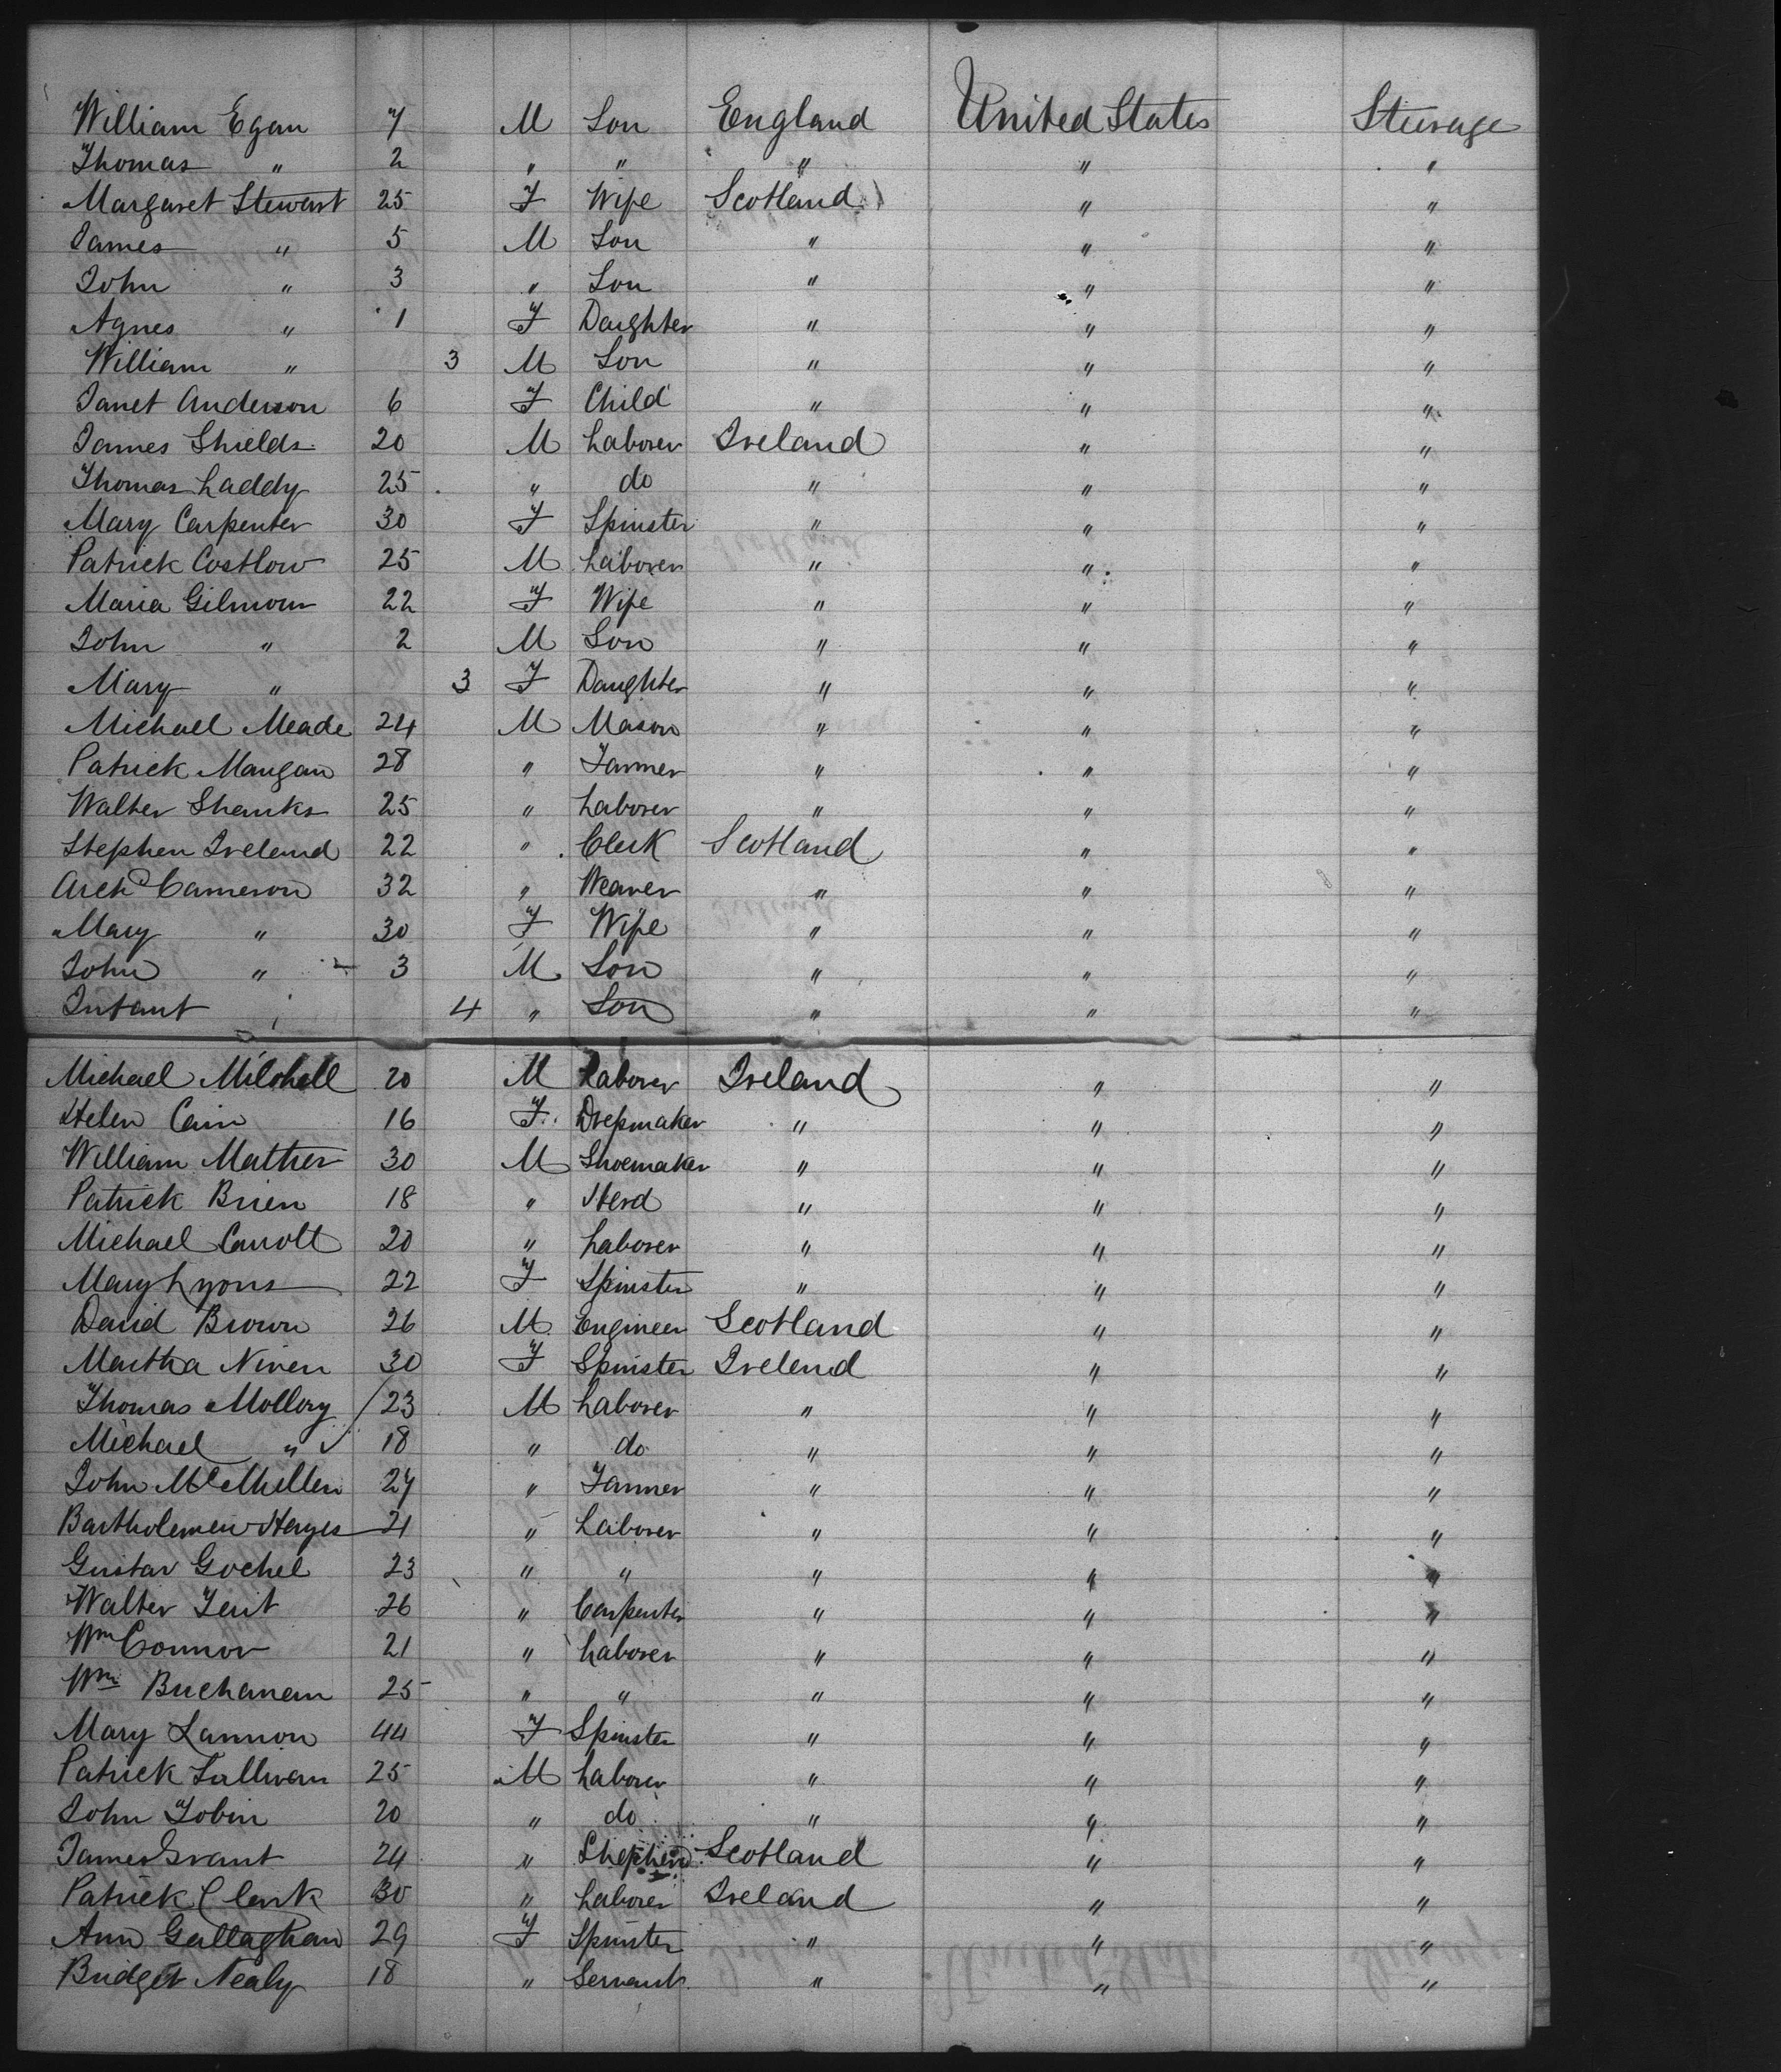 William Egan 7 M Son England United States Steerage
Thomas " 2 " " " " "
Margaret Stewart 25 F Wife Scotland " "
James " 5 M Son " " "
John " 3 " Son " " "
Agnes " 1 F Daughter " " "
William " 3 M Son " " "
Janet Anderson 6 F Child " " "
James Shields 20 M Laborer Ireland " "
Thomas Laddy 25 " do " " "
Mary Carpenter 30 F Spinster " " "
Patrick Costlow 25 M Laborer " " "
Maria Gilmour 22 F Wife " " "
John " 2 M Son " " "
Mary " 3 F Daughter " " "
Michael Meade 24 M Mason " " "
Patrick Mangan 28 " Farmer " " "
Walter Shanks 25 " Laborer " " "
Stephen Ireland 22 " Clerk Scotland " "
Archd Cameron 32 " Weaver " " "
Mary " 30 F Wife " " "
John " 3 M Son " " "
Infant 4 " Son " " "
Michael Mitchell 20 M Laborer Ireland " "
Helen Cain 16 F Dressmaker " " "
William Mather 30 M Shoemaker " " "
Patrick Brien 18 " Herd " " "
Michael Carroll 20 " Laborer " " "
Mary Lyons 22 F Spinster " " "
David Brown 26 M Engineer Scotland " "
Martha Niven 30 F Spinster Ireland " "
Thomas Mollory 23 M Laborer " " "
Michael " 18 " do " " "
John McMullen 27 " Farmer " " "
Bartholemew Hayes 21 " Laborer " " "
Gustav Gochel 23 " " " " "
Walter 26 " Carpenter " " "
Wm Connor 21 " Laborer " " "
Wm Buchanan 25 " " " " "
Mary Lannon 44 F Spinster " " "
Patrick Sullivan 25 M Laborer " " "
John Tobin 20 " do " " "
James Grant 24 " Shepherd Scotland " "
Patrick Clark 30 " Laborer Ireland " "
Ann Gallaghan 29 F Spinster " " "
Bridget Nealy 18 " Servant " " "